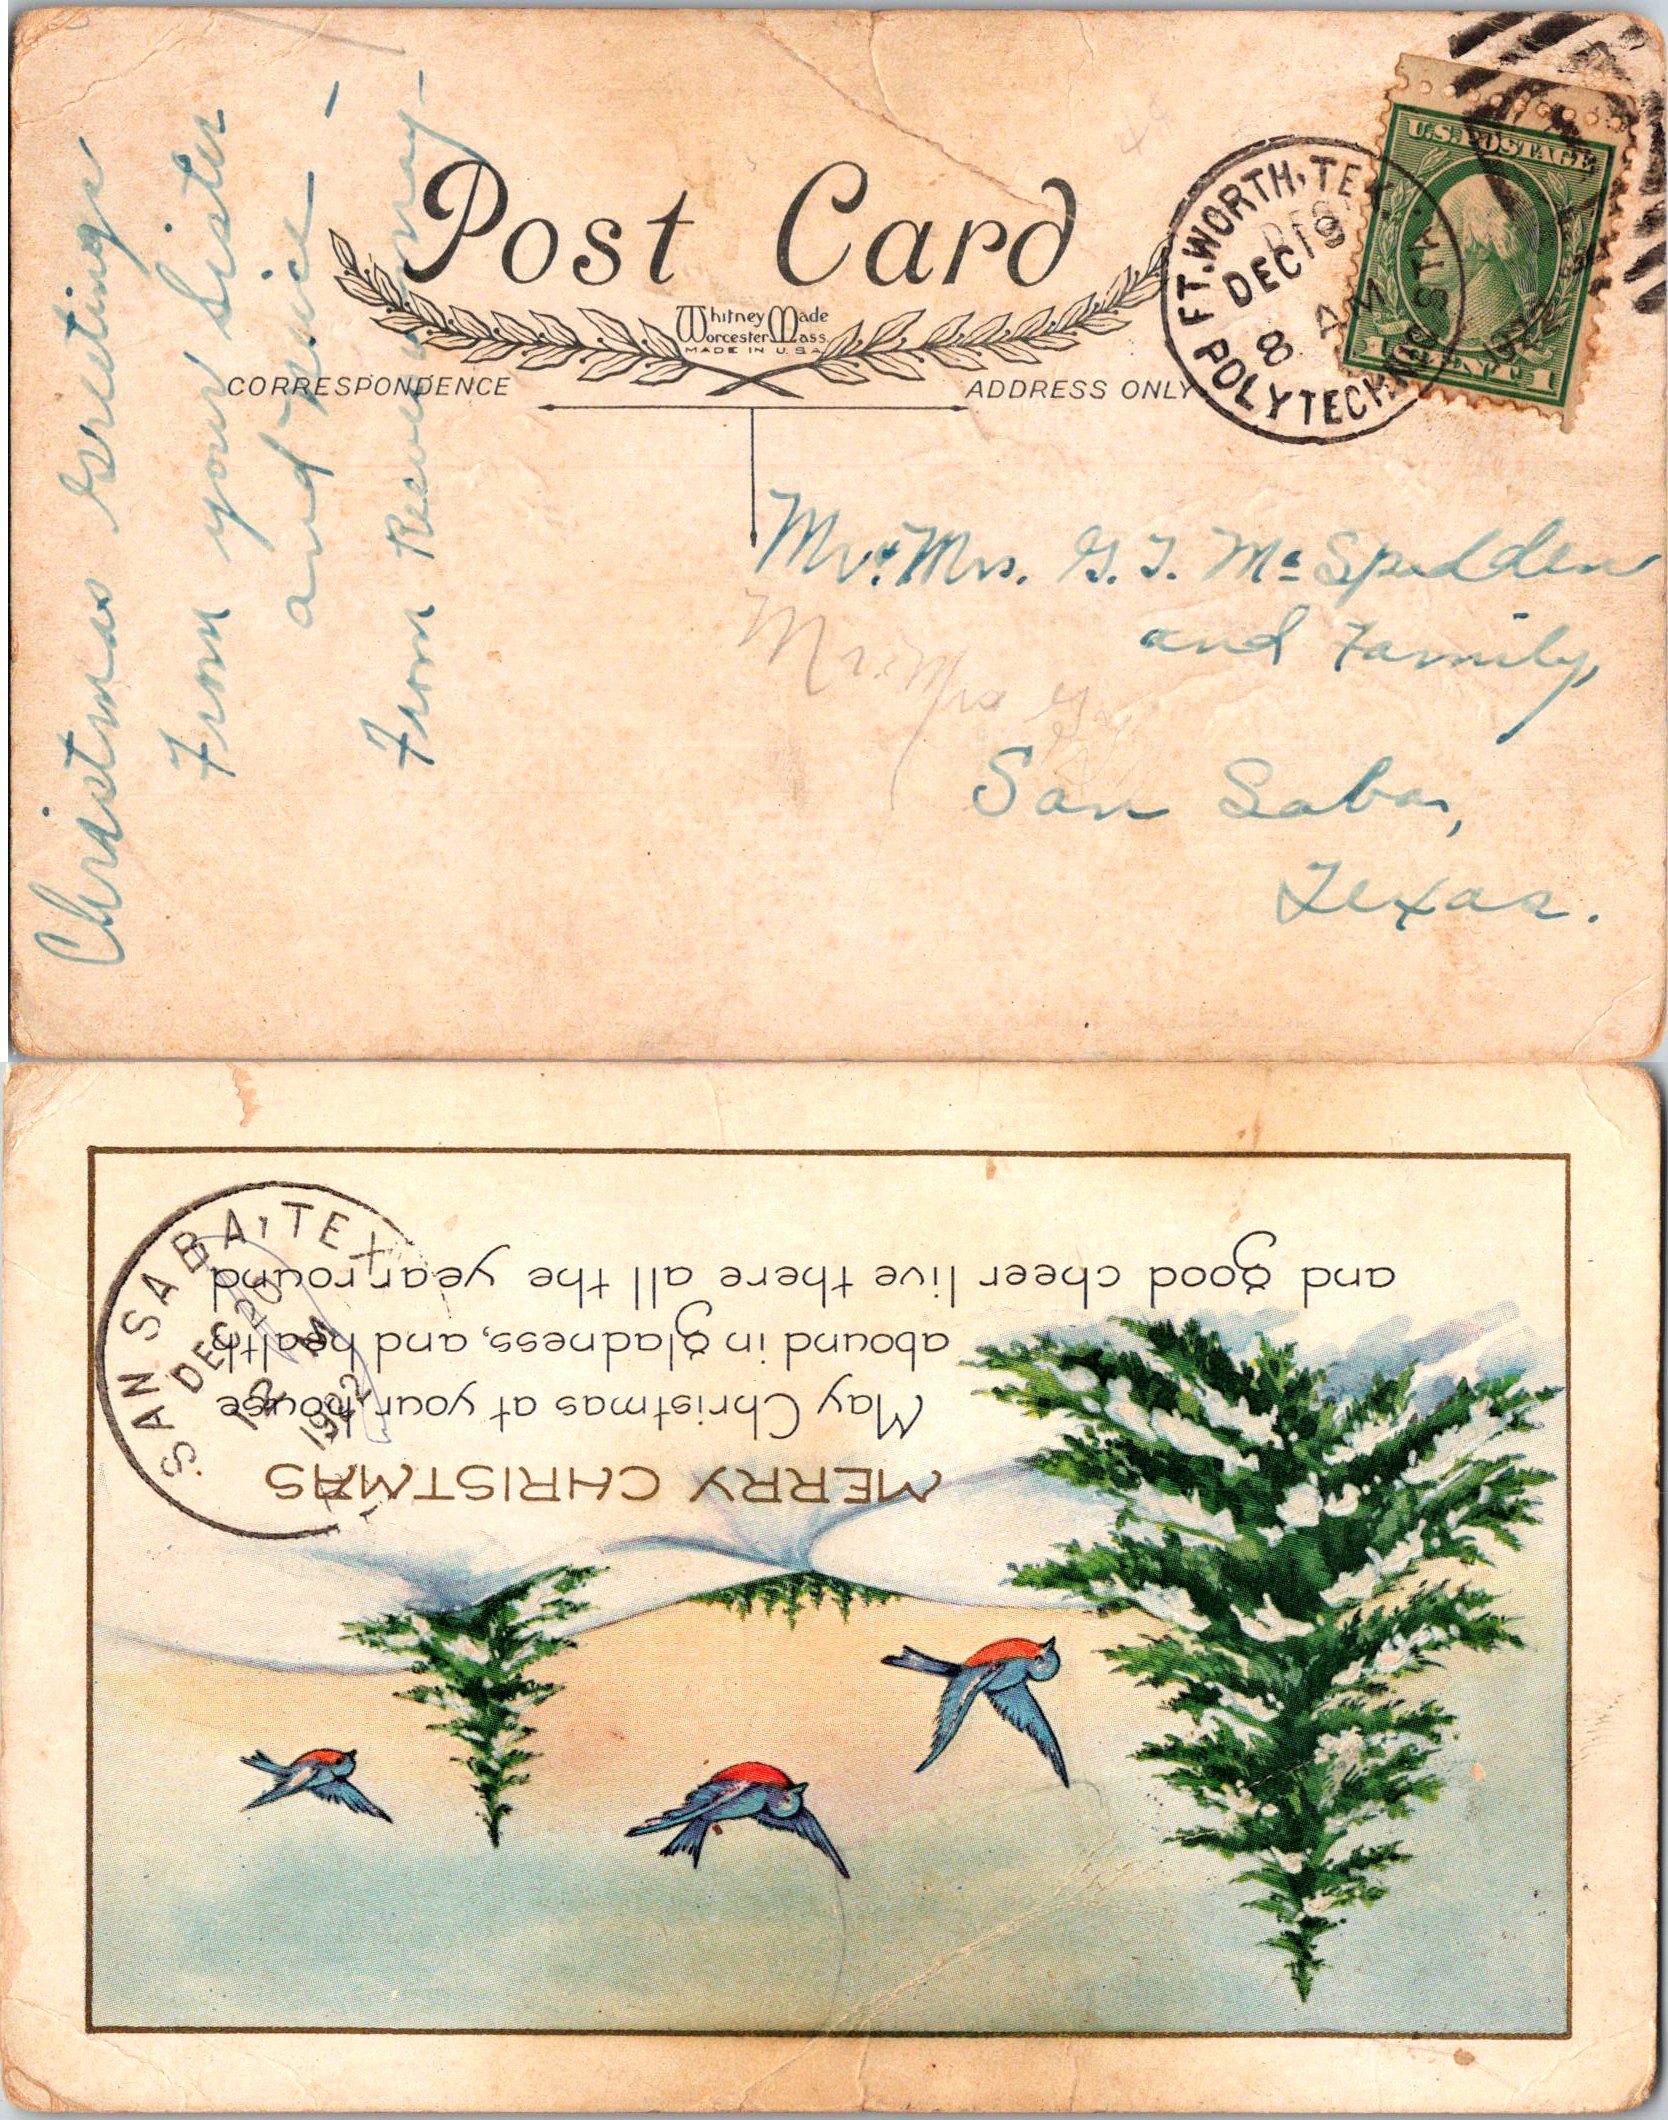 Christmas Greetings
From your Sister
and
From
Post Card
Whitney Made
Worcester Mass.
MADE IN U.S.A.
CORRESPONDENCE
ADDRESS ONLY
FT. WORTH, TEX.
DEC 19
8 AM
1922
POLYTECHNIC STA.
U.S. POSTAGE
1 CENT 1
Mr. & Mrs. G. T. McSpadden
and Family,
Mr. Mrs G
San Saba,
Texas.
SAN SABA, TEX.
DEC 20
12 M
1922
MERRY CHRISTMAS
May Christmas at your house
abound in gladness, and health
and good cheer live there all the year round